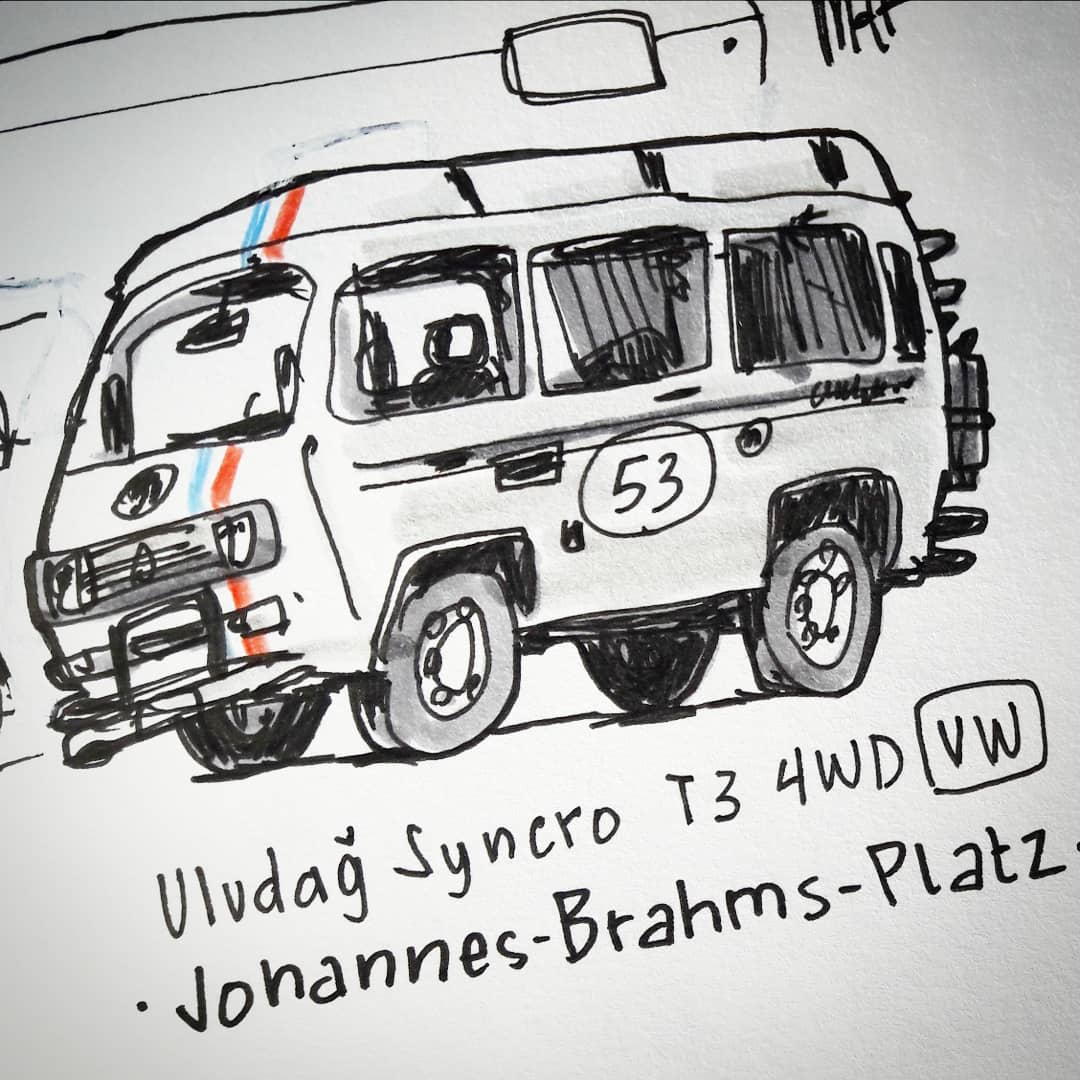 53
Uludağ Syncro T3 4WD VW
· Johannes-Brahms-Platz ·